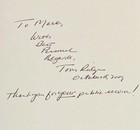 To Mara,
With
Best
Personal
Regards,
Tom Ridge
October 2009
Thank you for your public service!